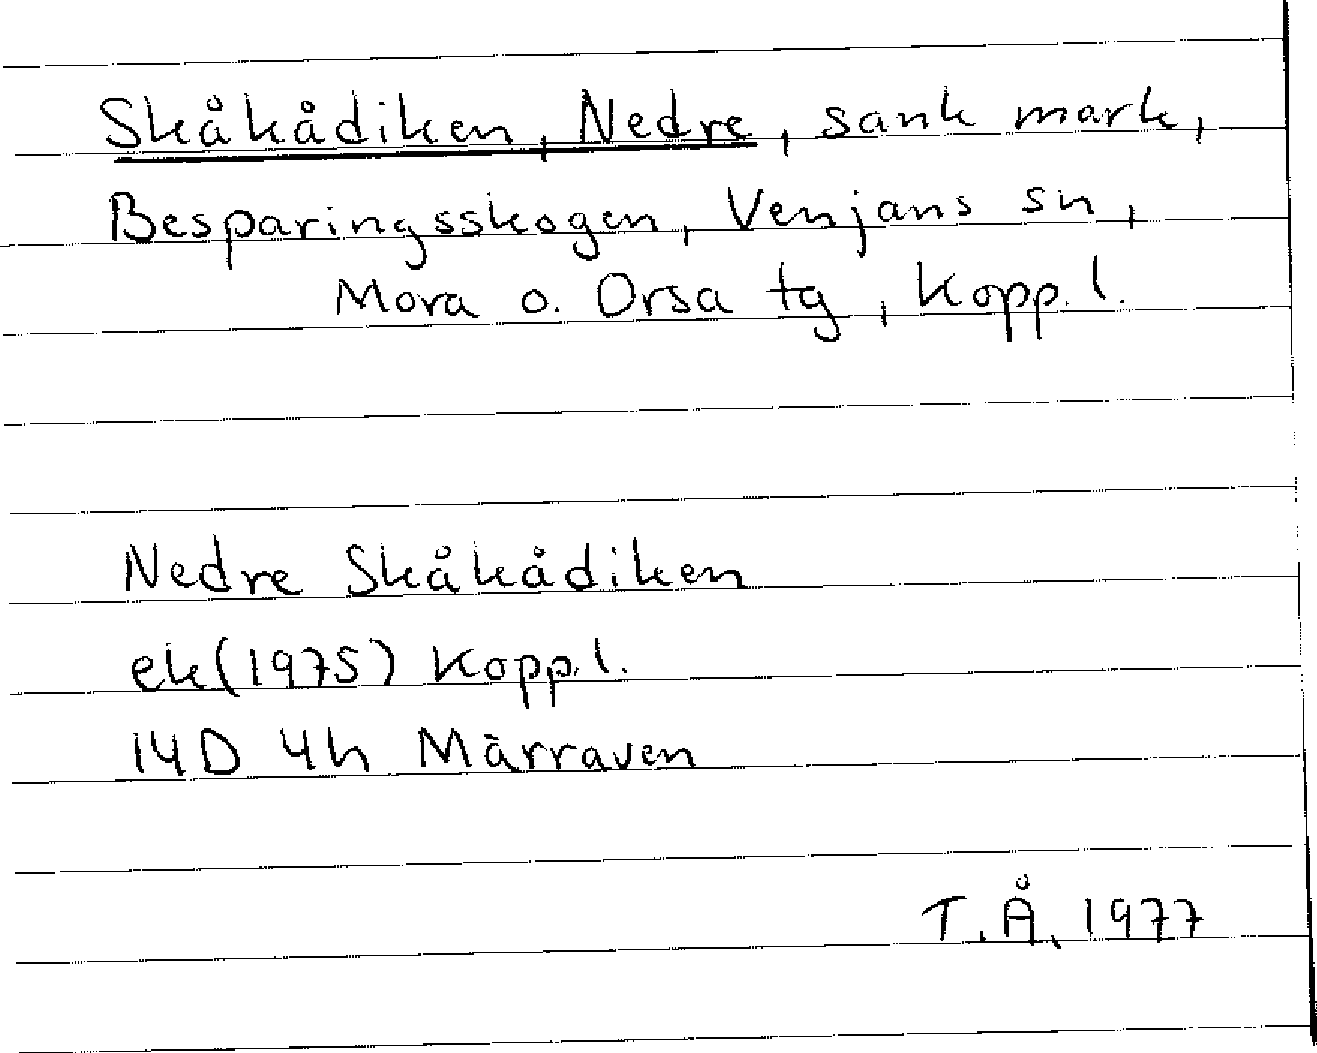 Skåkådiken, Nedre, sank mark,
Besparingsskogen, Venjans sn,
Mora o. Orsa tg, Kopp. l.
Nedre Skåkådiken
ek (1975) Kopp. l.
14D 4h Märraven
T. Å. 1977